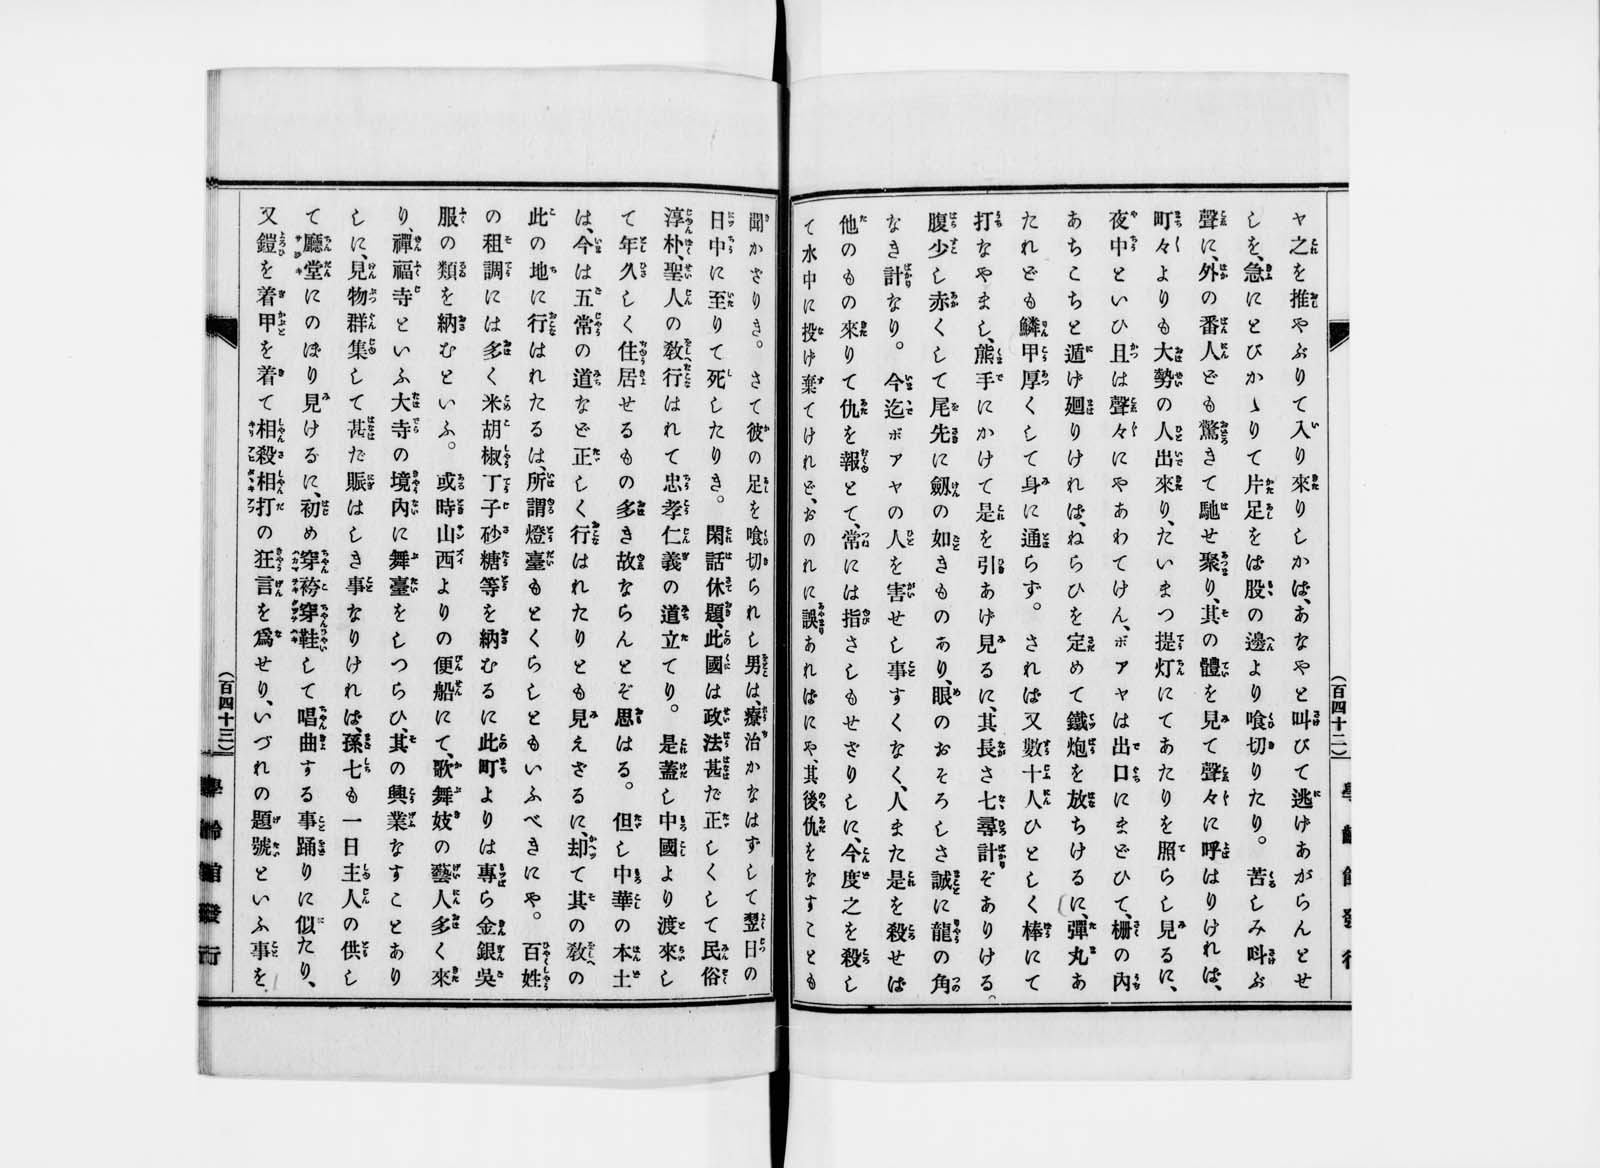 ヤ之を推やぶりて入り來りしかば、あなやと叫びて逃げあがらんとせ
しを、急にとびかゝりて片足をば股の邊より喰切りたり。苦しみ呌ぶ
聲に、外の番人ども驚きて馳せ聚り、其の體を見て聲々に呼はりければ、
町々よりも大勢の人出來り、たいまつ提灯にてあたりを照らし見るに、
夜中といひ且は聲々にやあわてけん、ボアヤは出口にまどひて、柵の內
あちこちと遁げ廻りければ、ねらひを定めて鐵炮を放ちけるに、彈丸あ
たれども鱗甲厚くして身に通らず。されば又數十人ひとしく棒にて
打なやまし、熊手にかけて是を引あげ見るに、其長さ七尋計ぞありける。
腹少し赤くして尾先に劔の如きものあり、眼のおそろしさ誠に龍の角
なき計なり。今迄ボアヤの人を害せし事すくなく、人また是を殺せば
他のもの來りて仇を報とて、常には指さしもせざりしに、今度之を殺し
て水中に投け棄てけれど、おのれに誤あればにや、其後仇をなすことも
（百四十二）
學齡館發行
聞かざりき。さて彼の足を喰切られし男は、療治かなはずして翌日の
日中に至りて死したりき。閑話休題、此國は政法甚だ正しくして民俗
淳朴、聖人の敎行はれて忠孝仁義の道立てり。是蓋し中國より渡來し
て年久しく住居せるもの多き故ならんとぞ思はる。但し中華の本土
は、今は五常の道など正しく行はれたりとも見えざるに、却て其の敎の
此の地に行はれたるは、所謂燈臺もとくらしともいふべきにや。百姓
の租調には多く米胡椒丁子砂糖等を納むるに此町よりは專ら金銀吳
服の類を納むといふ。或時山西よりの便船にて、歌舞妓の藝人多く來
り、禪福寺といふ大寺の境內に舞臺をしつらひ、其の興業なすことあり
しに、見物群集して甚だ賑はしき事なりければ、孫七も一日主人の供し
て廳堂にのぼり見けるに、初め穿袴穿鞋して唱曲する事踊りに似たり、
又鎧を着甲を着て相殺相打の狂言を爲せり、いづれの題號といふ事を
（百四十三）
學齡館發行